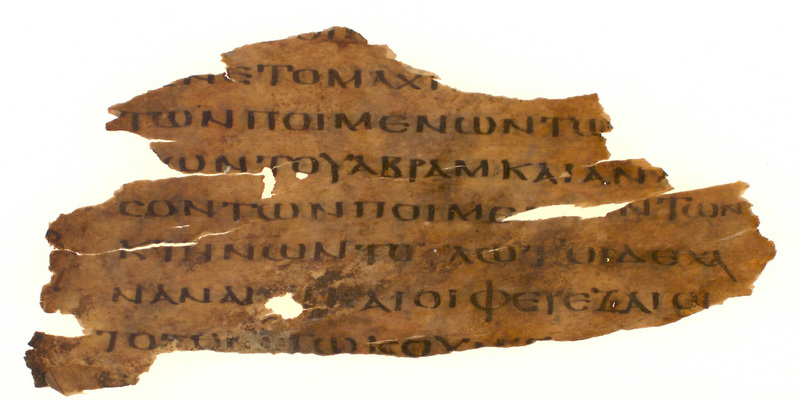 ΝΕΤΟΜΑΧ
ΤΩΝΠΟΙΜΕΝΩΝΤΩ
ΩΝΤΟΥΑΒΡΑΜΚΑΙΑΝΑ
ϹΟΝΤΩΝΠΟΙΜΕ ΝΤΩΝ
ΚΤΗΝΩΝΤΟΥΛΩΤΟΙΔΕΧΑ
ΝΑΝΑΙ ΑΙΟΙΦΕΡΕΖΑΙΟΙ
ΤΟΤΕΚΑΤΩΚΟΥΝ